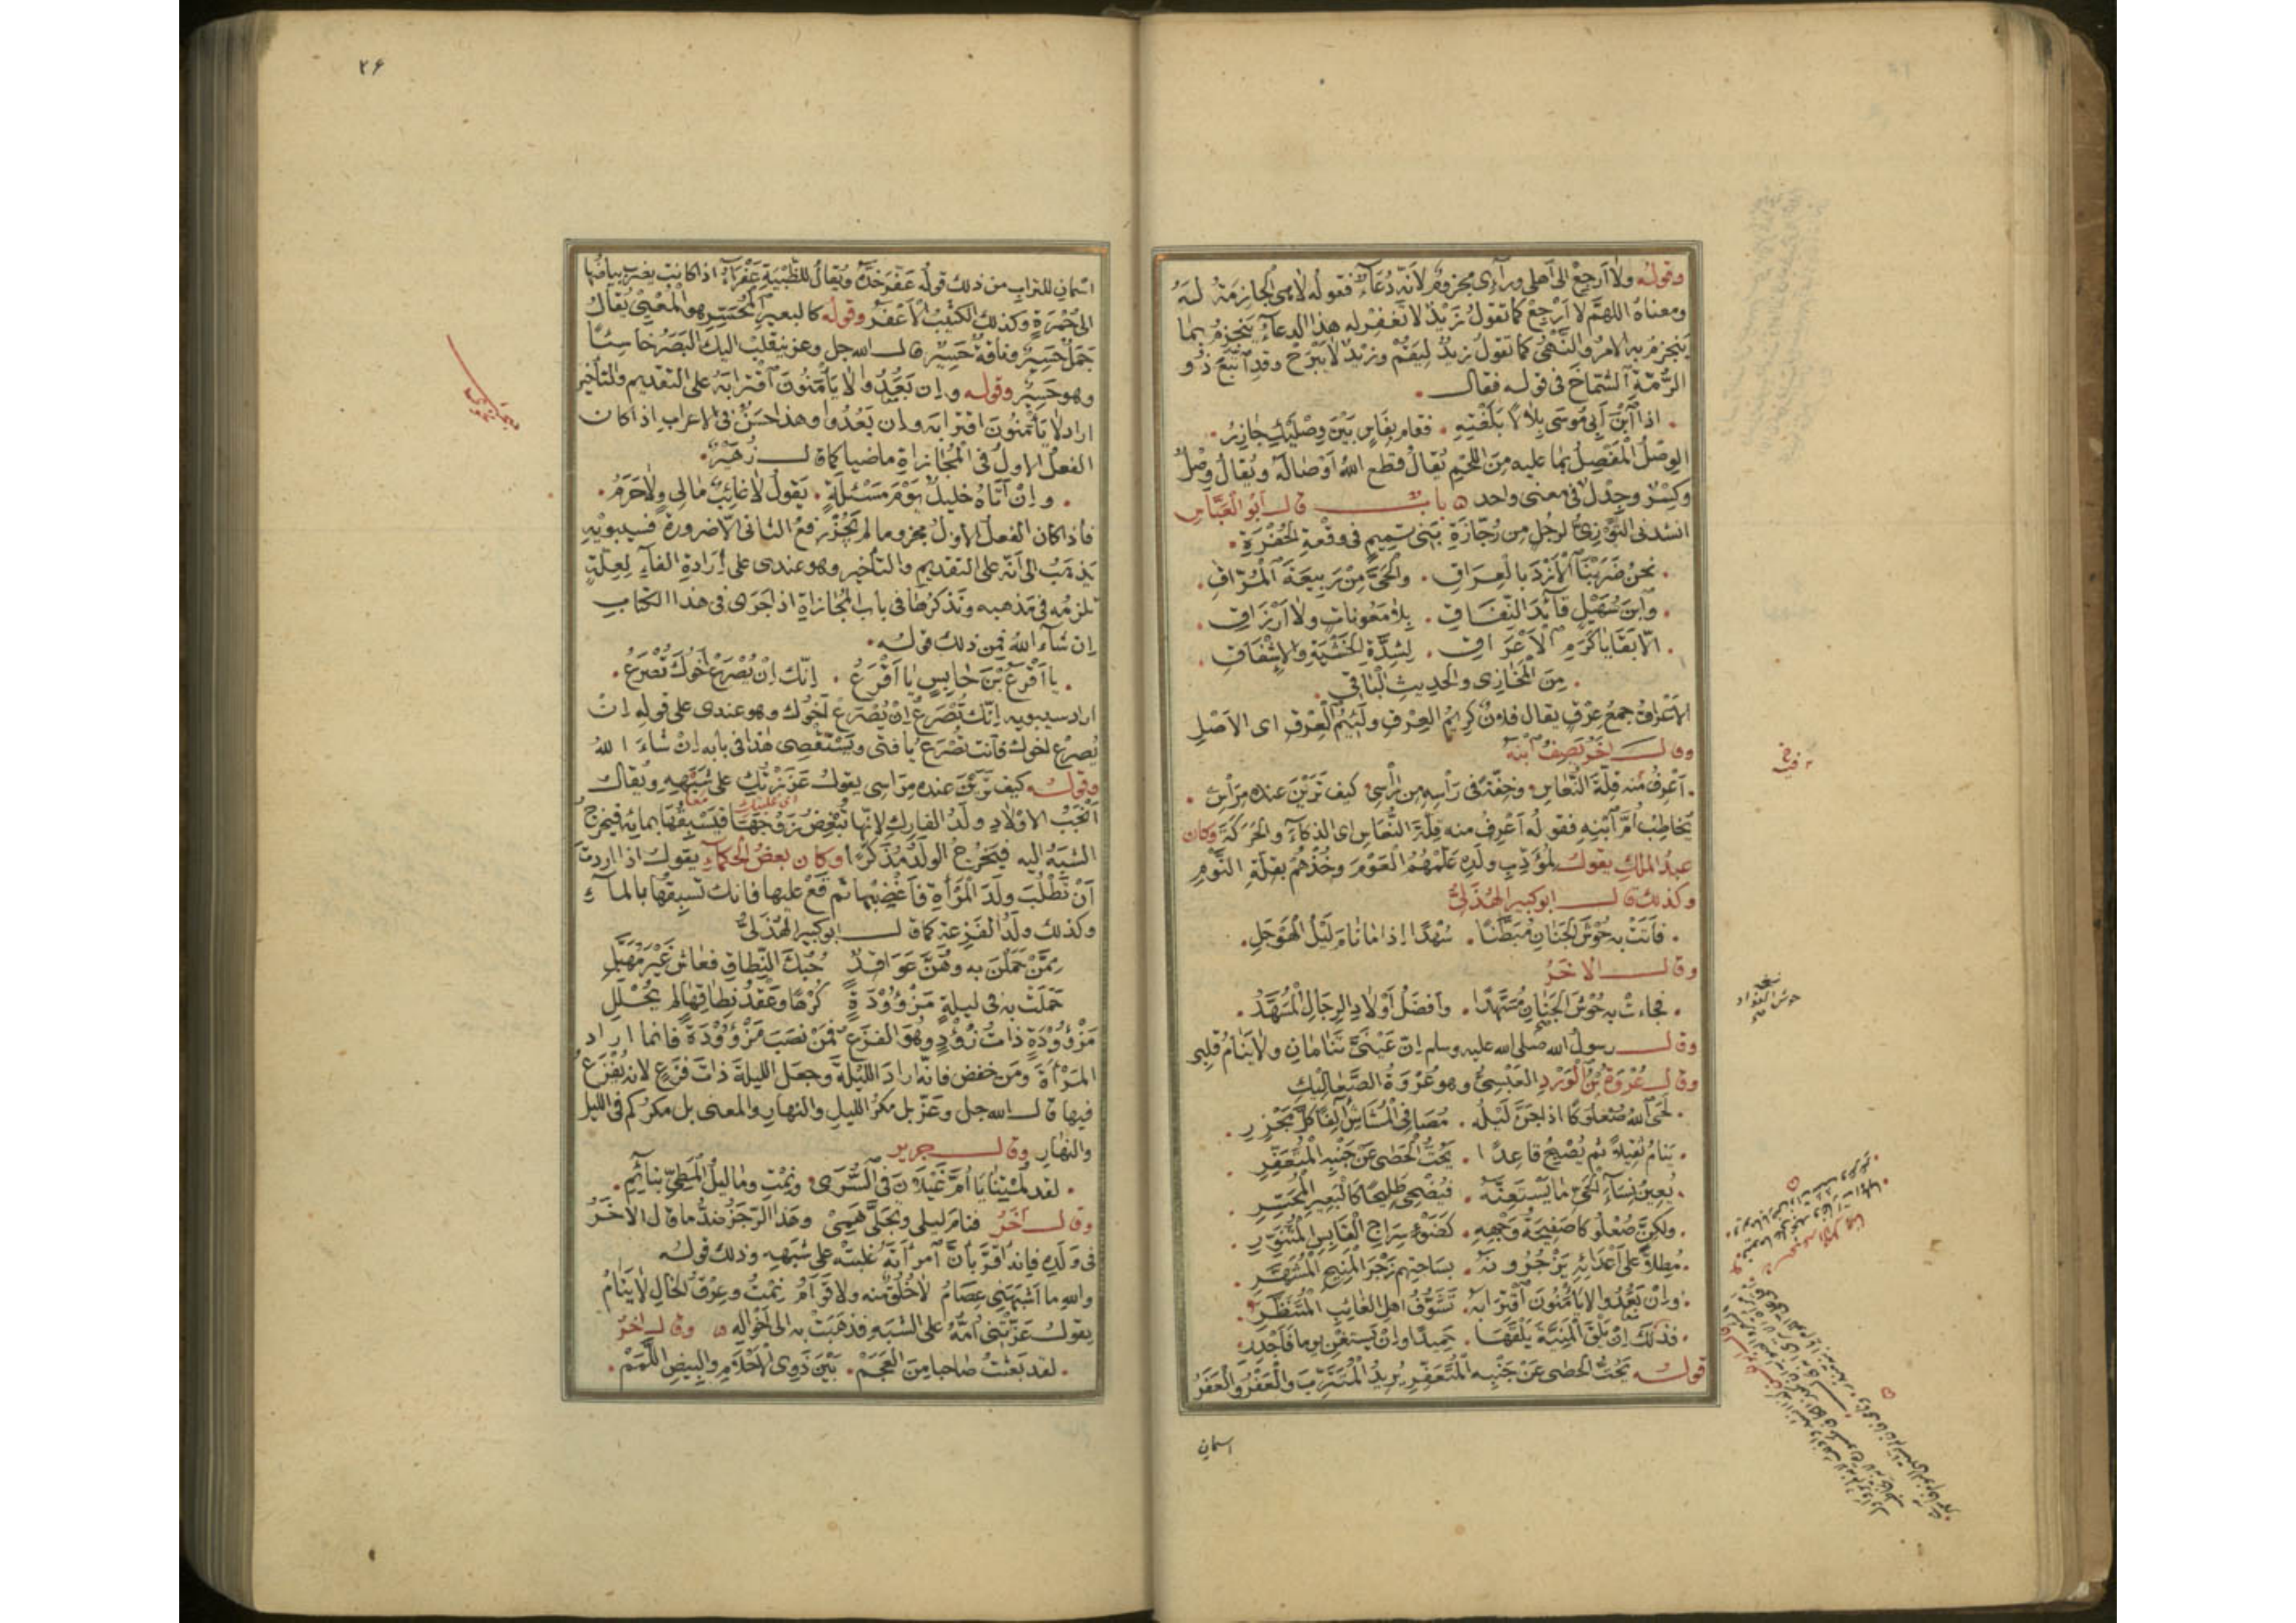 وقوله ولا أرجع الى أهلى ورآءى مجزوم لأنه دعآء فقوله لا هى الجازمة له
ومعناه اللهم لا أرجع كما تقول زيد لا تغفر له هذا الدعآء ينجزم بما
ينجزم به الامر والنهى كما تقول زيد ليقم وزيد لا يبرح وقد اتبع ذو
الرمة الشماخ فى قوله فقال
اذا ابن أبى موسى بلالا بلغته فقام بفاس بين وصليك جازر
الوصل المفصل بما عليه من اللحم يقال قطع الله أوصاله ويقال وصل
وكسر وجدل فى معنى واحد باب قال أبو العباس
انشدنى التوزى لرجل من رجازة بنى تميم فى وقعة الجفرة
نحن ضربنا الأزد بالعراق والحى من ربيعة المراق
وابن سهيل قآئد النفاق بلا معونات ولا أرزاق
الا بقايا كرم الأعراق لشدة الخشية والاشفاق
من المخازى والحديث الباقى
الأعراق جمع عرق يقال فلان كريم العرق ولئيم العرق اى الاصل
وقال آخر يصف ابنه
أعرف منه قلة النعاس وخفة فى رأسه من راسى كيف ترين عنده مراسى
يخاطب أم ابنه فقوله أعرف منه قلة النعاس اى الذكآء والحركة وكان
عبد الملك يقول لمؤدب ولده علمهم العوم وخذهم بقلة النوم
وكذلك قال ابو كبير الهذلى
فأتت به حوش الجنان مبطنا سهدا اذا ما نام ليل الهوجل
وقال الاخر
فجاءت به حوش الجنان مسهدا وأفضل أولاد الرجال المسهد
وقال رسول الله صلى الله عليه وسلم ان عينى تنامان ولا ينام قلبى
وقال عروة بن الورد العبسى وهو عروة الصعاليك
لحى الله صعلوكا اذا جن ليله مصافى المشاش آلفا كل مجزر
ينام ثقيلا ثم يصبح قاعدا يحت الحصى عن جنبه المتعفر
يعين نسآء الحى ما يستعنه فيضحى طليحا كالبعير المحسر
ولكن صعلوكا صفيحة وجهه كضوء سراج القابس المتنور
مطلا على أعدائه يزجرونه بساحتهم زجر المنيح المشهر
وان بعدوا لا يأمنون اقترابه تشوف اهل الغائب المتنظر
فذلك ان يلق المنية يلقها حميدا وان يستغن يوما فأجدر
قوله يحت الحصى عن جنبه المتعفر يريد المتترب والعفر والعفر
نسخة
حوش الفؤاد
اسمان
٢۶
اسمان للتراب من ذلك قوله عفر خده ويقال للظبية عفرآء اذا كانت يضرب بياضها
الى حمرة وكذلك الكثيب الأعفر وقوله كالبعير المحسر هو المعيى يقال
جمل حسير وناقة حسير قال الله جل وعز ينقلب اليك البصر خاسئا
وهو حسير وقوله وان بعدوا لا يأمنون اقترابه على التقديم والتأخير
اراد لا يأمنون اقترابه وان بعدوا وهذا حسن فى الاعراب اذا كان
الفعل الاول فى المجازاة ماضيا كما قال زهير
وان أتاه خليل يوم مسئلة يقول لا غائب مالى ولا حرم
فاذا كان الفعل الاول مجزوما لم يجز رفع الثانى الا ضرورة فسيبويه
يذهب الى أنه على التقديم والتأخير وهو عندى على ارادة الفآء لعلة
تلزمه فى مذهبه ونذكرها فى باب المجازاة اذا جرى فى هذا الكتاب
ان شآء الله فمن ذلك قوله
يا أقرع بن حابس يا أقرع انك ان يصرع أخوك تصرع
اراد سيبويه انك تصرع ان يصرع أخوك وهو عندى على قوله ان
يصرع اخوك فانت تصرع يا فتى ويستقصى هذا فى بابه ان شاء الله
وقوله كيف ترين عنده مراسى يقول عززتك على شبهه ويقال
اى غلبتك معا
أنجب الاولاد ولد الفارك لانها تبغض زوجها فيسبقها بمائه فيخرج
الشبه اليه فيخرج الولد مذكرا وكان بعض الحكمآء يقول اذا اردت
أن تطلب ولد المرأة فأغضبها ثم قع عليها فانك تسبقها بالمآء
وكذلك ولد الفزعة كما قال ابو كبير الهذلى
ممن حملن به وهن عواقد حبك النطاق فعاش غير مهبل
حملت به فى ليلة مزؤودة كرها وعقد نطاقها لم يحلل
مزؤودة ذات زؤد وهو الفزع فمن نصب مزؤودة فانما اراد
المرأة ومن خفض فانه اراد الليلة وجعل الليلة ذات فزع لانه يفزع
فيها قال الله جل وعز بل مكر الليل والنهار والمعنى بل مكركم فى الليل
والنهار وقال جرير
لقد لمتينا يا أم غيلان فى السرى ونمت وما ليل المطى بنائم
وقال آخر فنام ليلى وتجلى همى وهذا الرجز ضد ما قال الاخر
فى ولده فانه أقر بأن أمرأته غلبته على شبهه وذلك قوله
والله ما أشبهنى عصام لا خلق منه ولا قوام نمت وعرق الخال لا ينام
يقول عزتنى أمه على الشبه فذهبت به الى أخواله وقال اخر
لقد بعثت صاحبا من العجم بين ذوى الأحلام والبيض اللمم